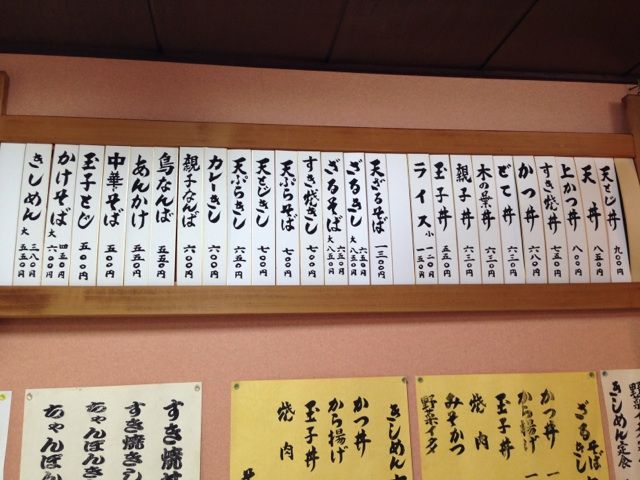 天とじ丼 九〇〇円
天丼 八五〇円
上かつ丼 八〇〇円
すき焼丼 七五〇円
かつ丼 六八〇円
ぜて丼 六三〇円
木の葉丼 六三〇円
親子丼 六三〇円
玉子丼 五五〇円
ライス 小 一二〇円 大 一五〇円
天ざるそば 一三〇〇円
ざるきし 六五〇円 大 八五〇円
ざるそば 六五〇円 大 八五〇円
すき焼きし 七〇〇円
天ぷらそば 七〇〇円
天とじきし 七〇〇円
天ぷらきし 六五〇円
カレーきし 六〇〇円
親子なんば 六〇〇円
鳥なんば 五五〇円
あんかけ 五五〇円
中華そば 五五〇円
玉子とじ 五〇〇円
かけそば 四五〇円 大 六〇〇円
きしめん 三八〇円 大 五五〇円
きしめん定食
ざるそば
ざるきし
かつ丼
から揚げ
玉子丼
焼肉
みそかつ
野菜イタ
きしめん
かつ丼
から揚げ
玉子丼
焼肉
すき焼丼
すき焼きし
ちゃんぽんき
ちゃんぽん